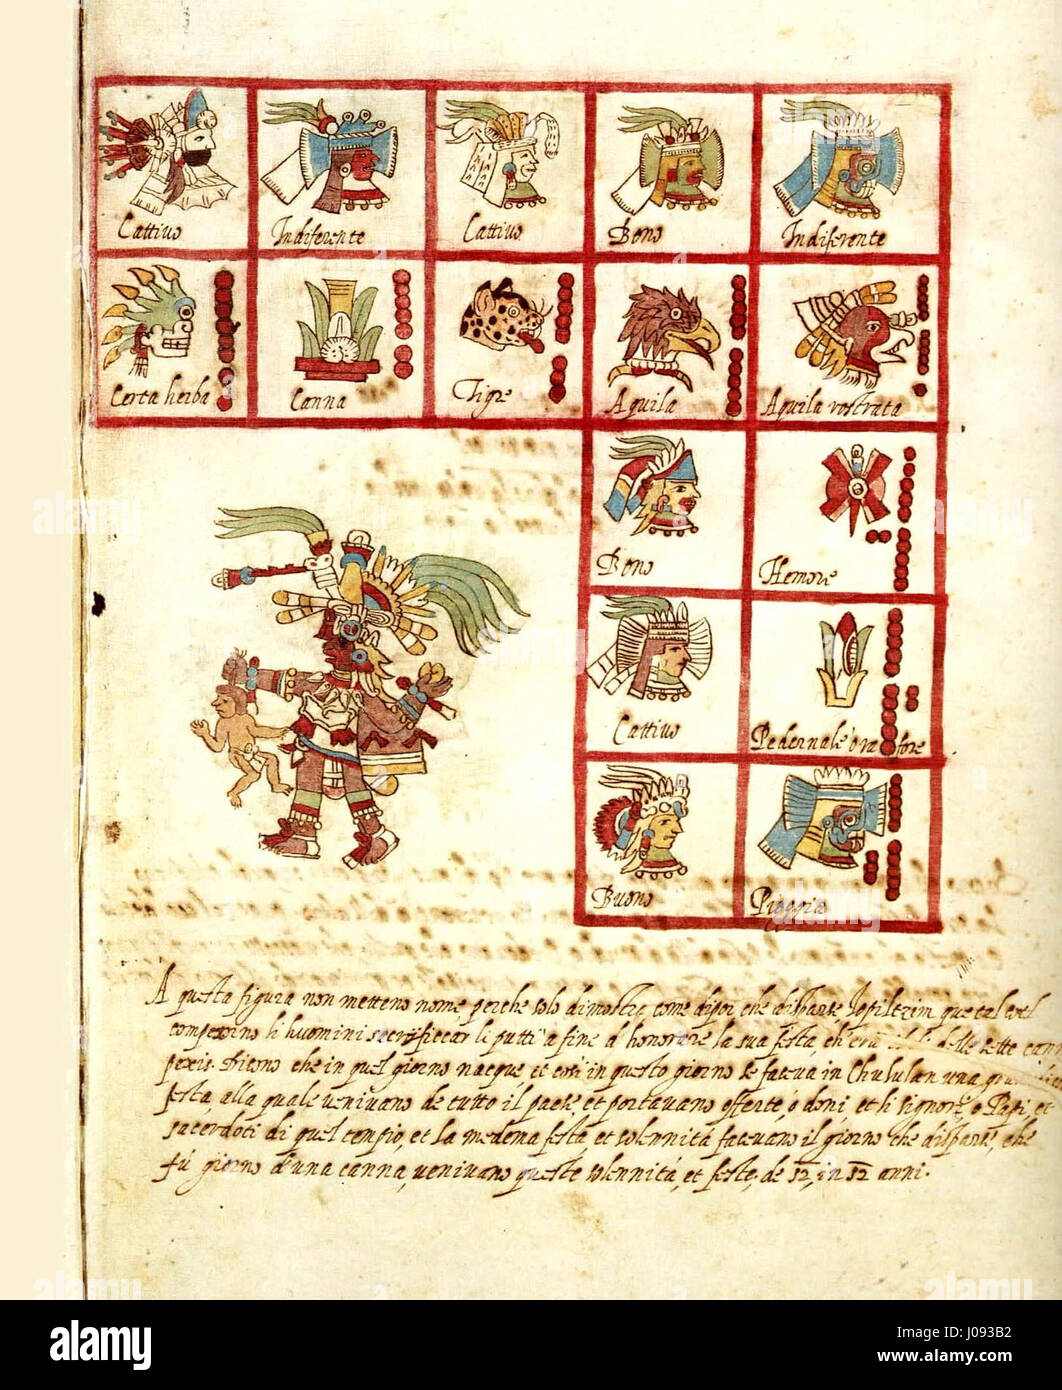 Cattivo Indiferente Cattivo Bono Indiferente
Certa herba Canna Tigre Aquila Aquila vostrata
Bono Hemore
Cattivo Pedernale
Buono Pioggia
A questa figura non metteno nome perche solo dimostra come dipoi che disparve
li huomini sacrificar li putti a fine d honorare la sua festa, ch'era il dì delle sette cann
Dicono che in quel giorno nacque et così in questo giorno se faceva in Chululan una
festa, alla quale venivano de tutto il paese et portavano offerte, o doni, et li signori, o Papi, et
sacerdoti di quel tempio, et la medema festa, et solennità facevano il giorno che disparve, che
fù giorno de una canna, venivano queste solennità, et feste, de 52, in 52 anni.
alamy
Image ID: J093B2
www.alamy.com